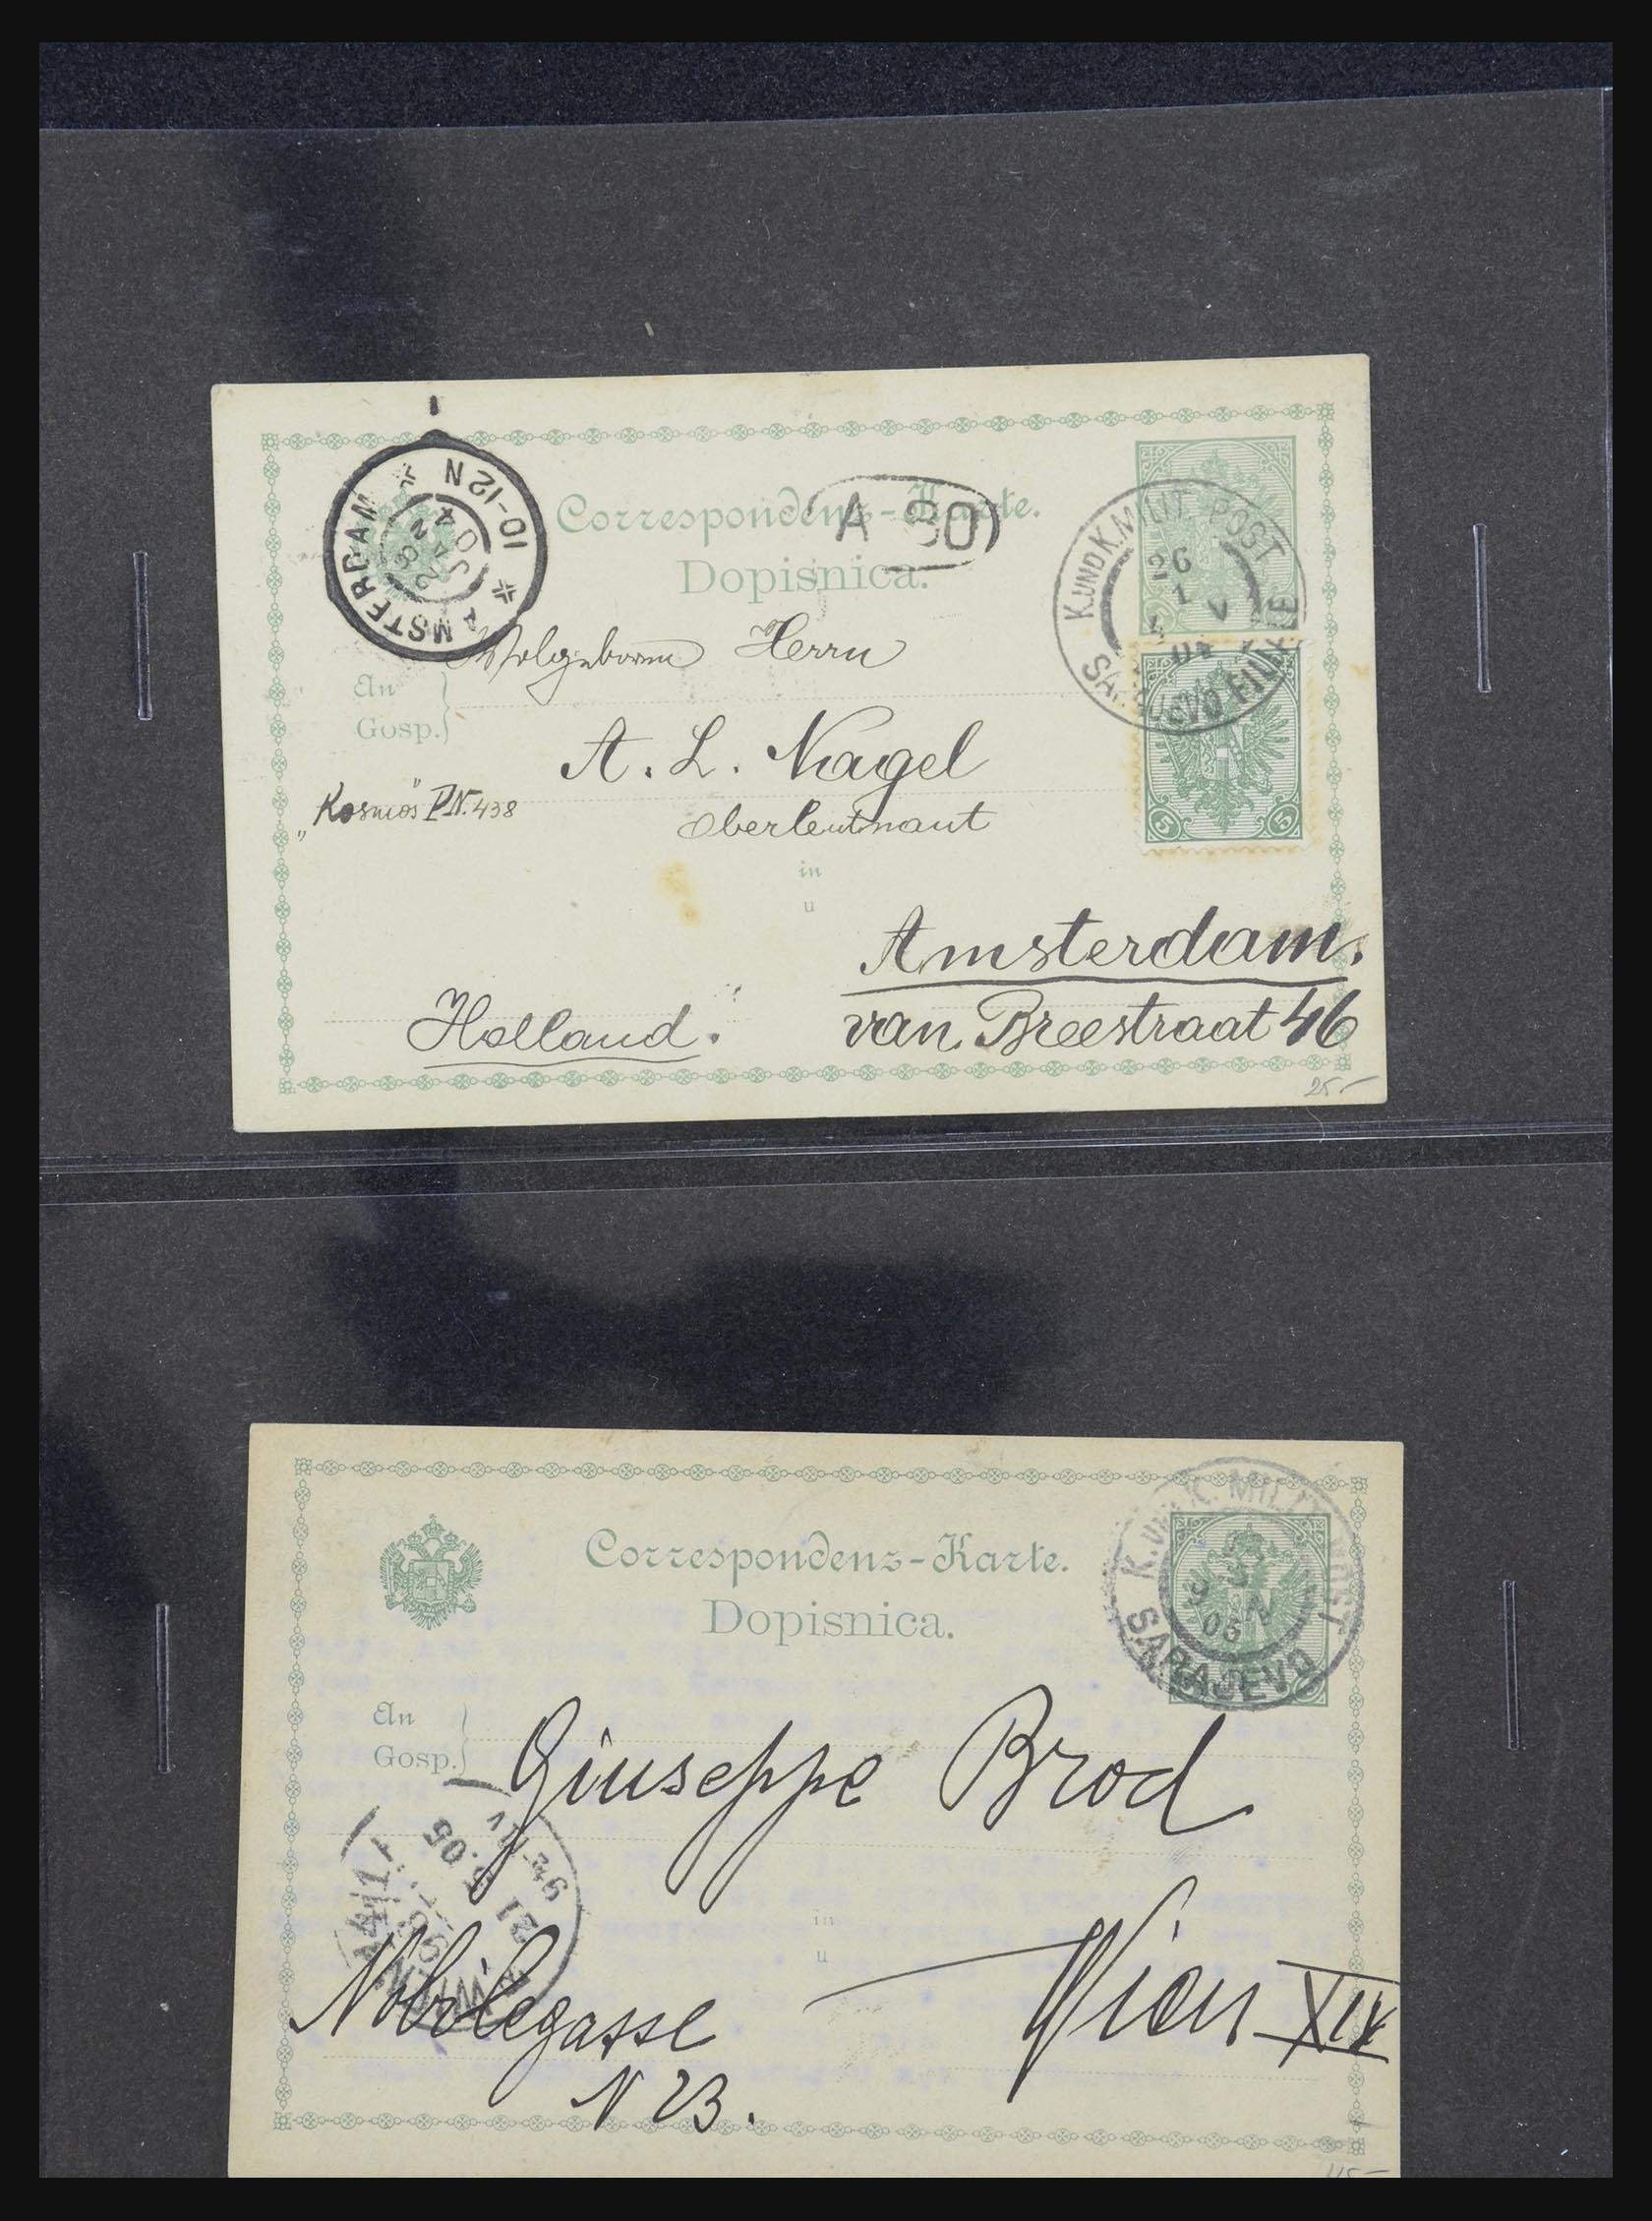 10-12N
AMSTERDAM
28 JAN 04
Correspondenz-Karte.
A 30
Dopisnica.
K.UND K.MILIT. POST
26
1
SARAJEVO FILIALE
Wolgeboren Herrn
An
Gosp.
A. L. Nagel
„Kosmos" P.N. 438
Oberleutnant
5 5
in
u
Amsterdam.
Holland.
van Breestraat 46
25-
Correspondenz-Karte.
Dopisnica.
K. MILIT. POST
9 N
05
SARAJEVO
An
Gosp.
Giuseppe Brod
21 05
in
u
WIEN
Nobilegasse
Wien XIV
N 23.